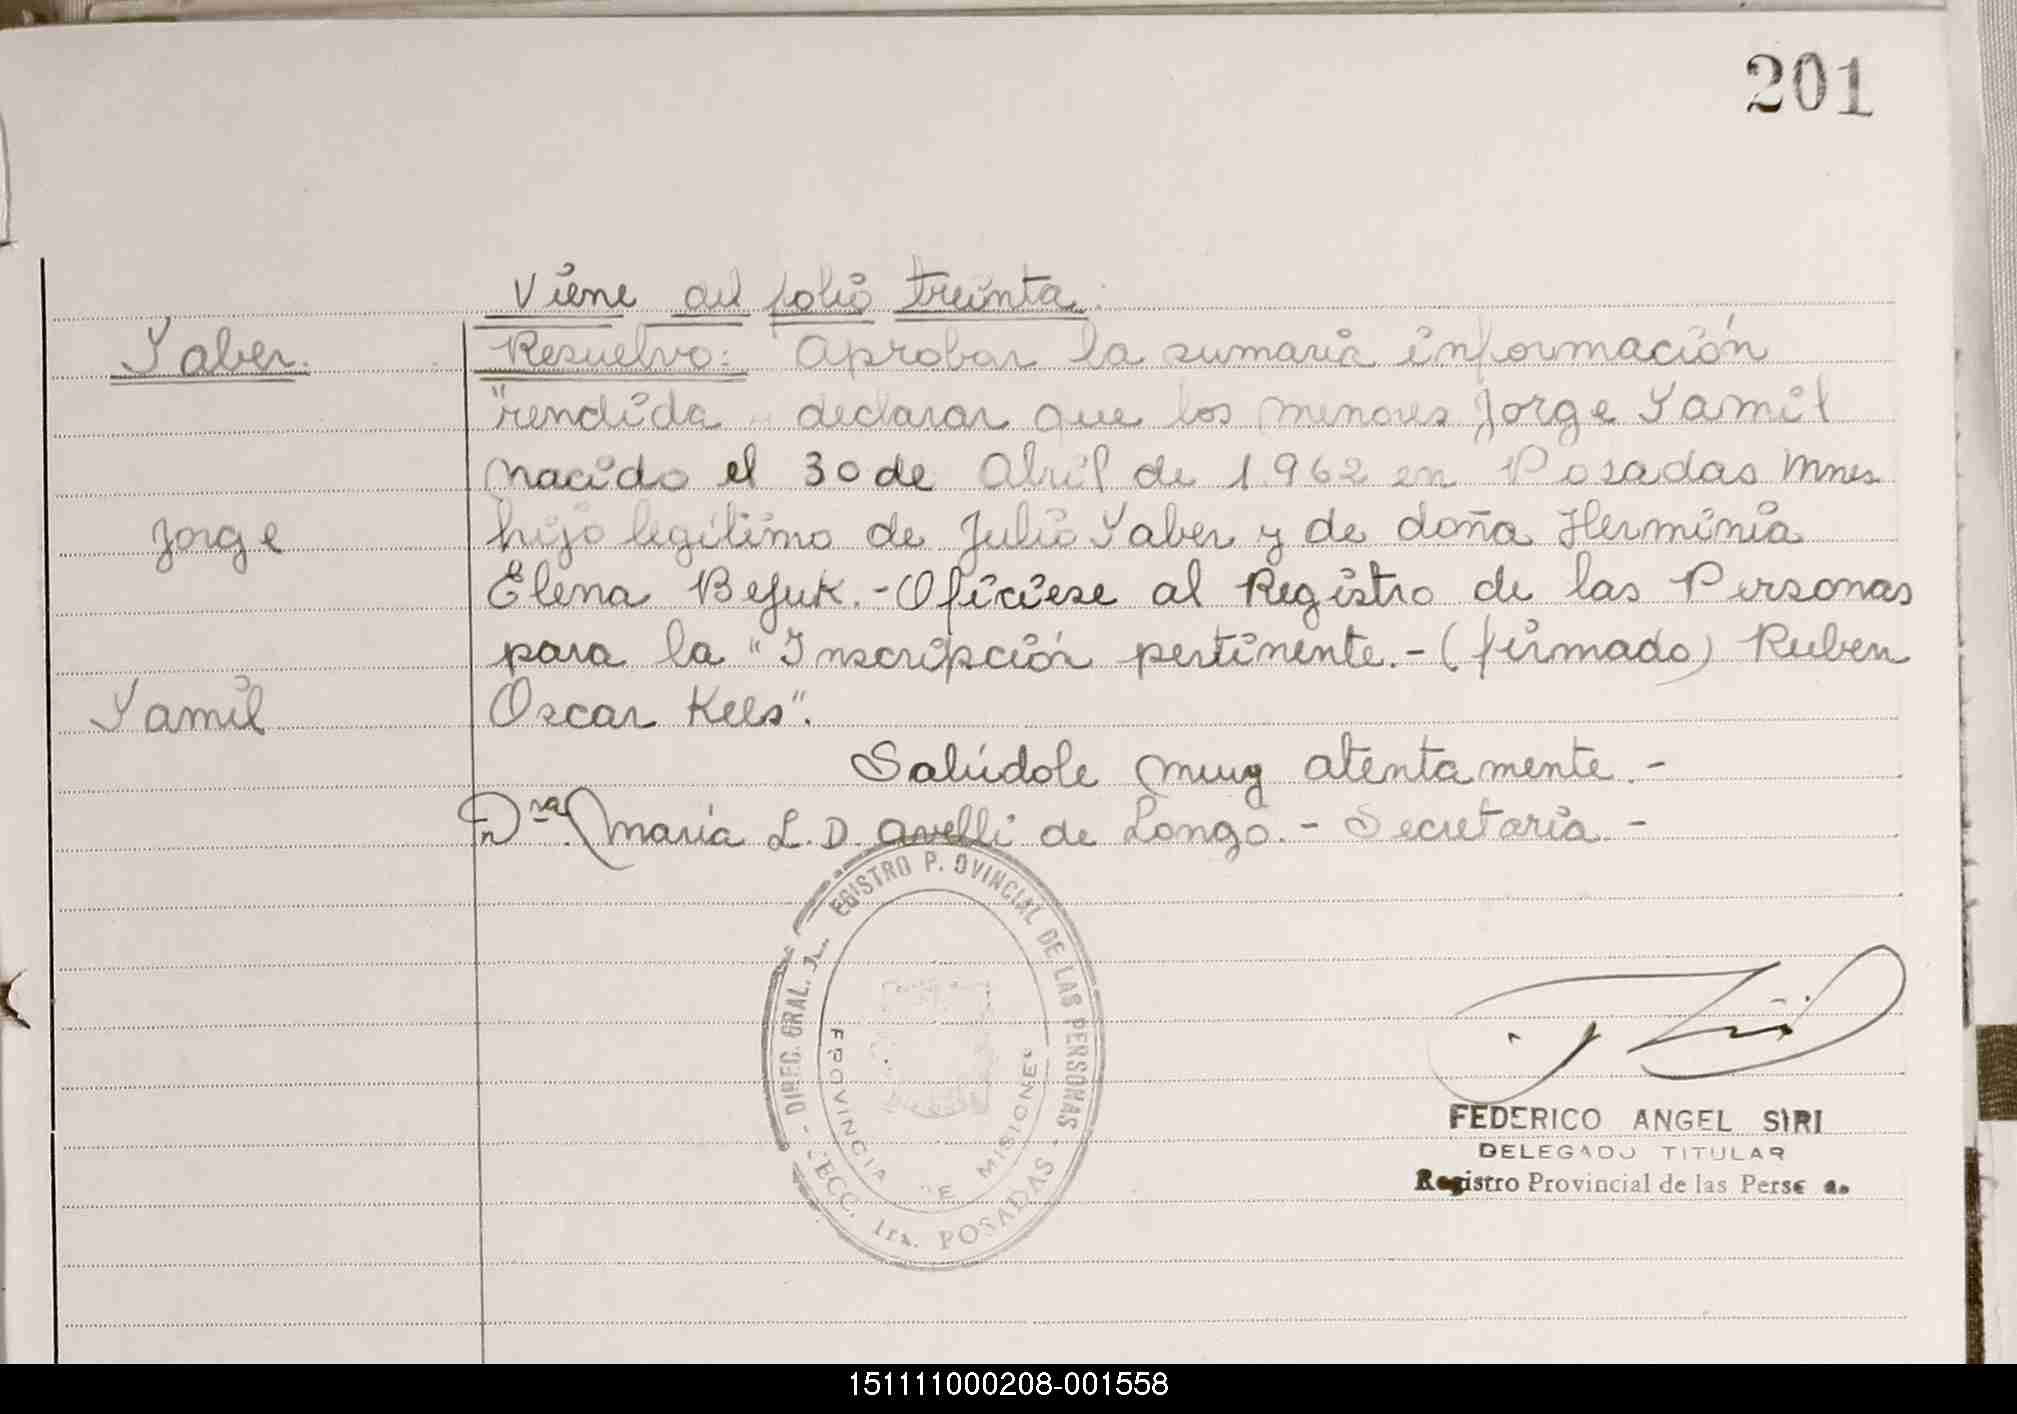 201
Viene del folio treinta.
Yaber. Resuelvo: Aprobar la sumaria información
"rendida y declarar que los menores Jorge Yamil
nacido el 30 de Abril de 1.962 en Posadas Mnes
Jorge hijo legítimo de Julio Yaber y de doña Herminia
Elena Bejuk.- Ofíciese al Registro de las Personas
para la "Inscripción pertinente.- (firmado) Ruben
Yamil Oscar Kees".
Salúdole muy atentamente.-
Dra. María L. D. Avelli de Longo.- Secretaria.-
DIREC. GRAL. EGISTRO P. OVINCIAL DE LAS PERSONAS
PROVINCIA DE MISIONES
SECC. 1ra. POSADAS
FEDERICO ANGEL SIRI
DELEGADO TITULAR
Registro Provincial de las Pers
151111000208-001558